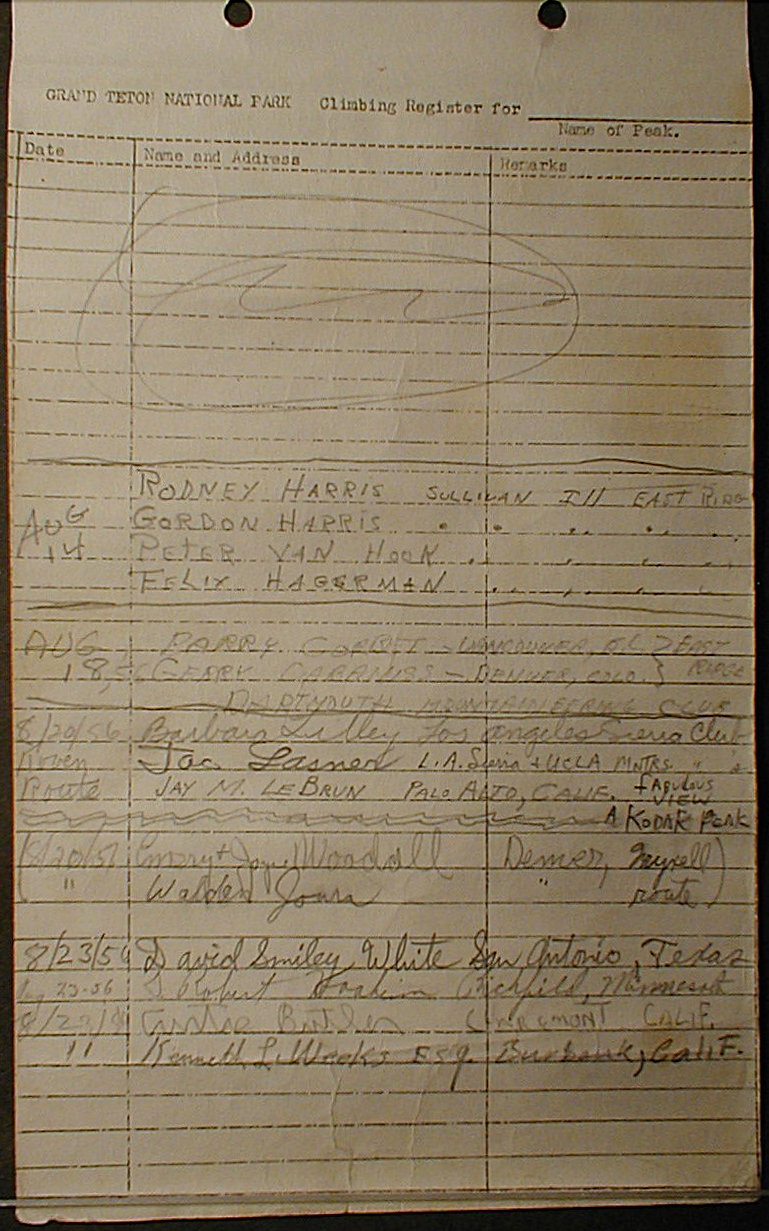 GRAND TETON NATIONAL PARK Climbing Register for
Name of Peak.
Date Name and Address Remarks
RODNEY HARRIS SULLIVAN Ill EAST RIDG
AUG GORDON HARRIS " " " " "
14 PETER VAN HOOK " " " "
FELIX HAGERMAN " " " " "
AUG PARRY - VANCOUVER, EAST
18,56 GERRY - DENVER, COLO. } RIDGE
DARTMOUTH MOUNTAINEERING CLUB
8/20/56 Barbara Lilley Los Angeles Sierra Club
Route L.A. Sierra + UCLA MNTRS. " "
JAY M. LEBRUN PALO ALTO, CALIF. FABULOUS
VIEW
A KODAK PEAK
Emory + Woodall Denver,
" Walden " route)
8/23/56 David Smiley White San Antonio, Texas
23-56 Robert Richfield, Minnesota
CLAREMONT CALIF.
" Kenneth L. Weeks ESq. Burbank, CaliF.